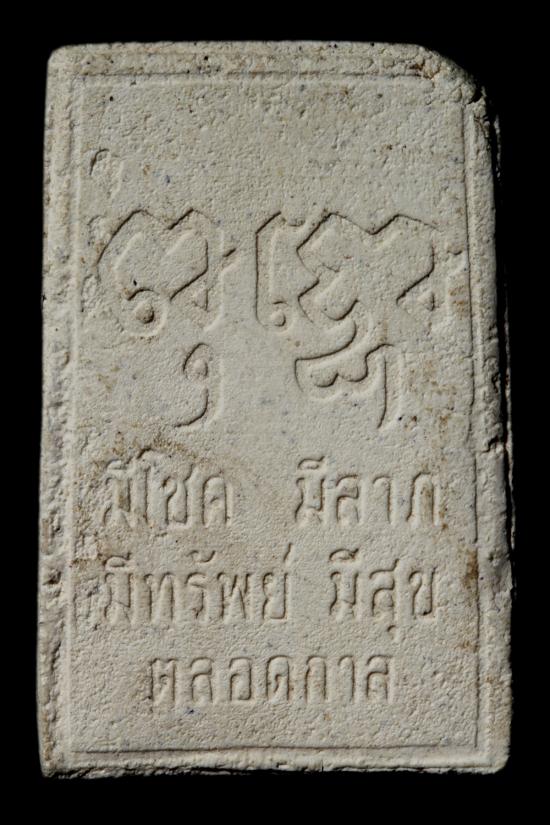 มีโชค มีลาภ
มีทรัพย์ มีสุข
ตลอดกาล